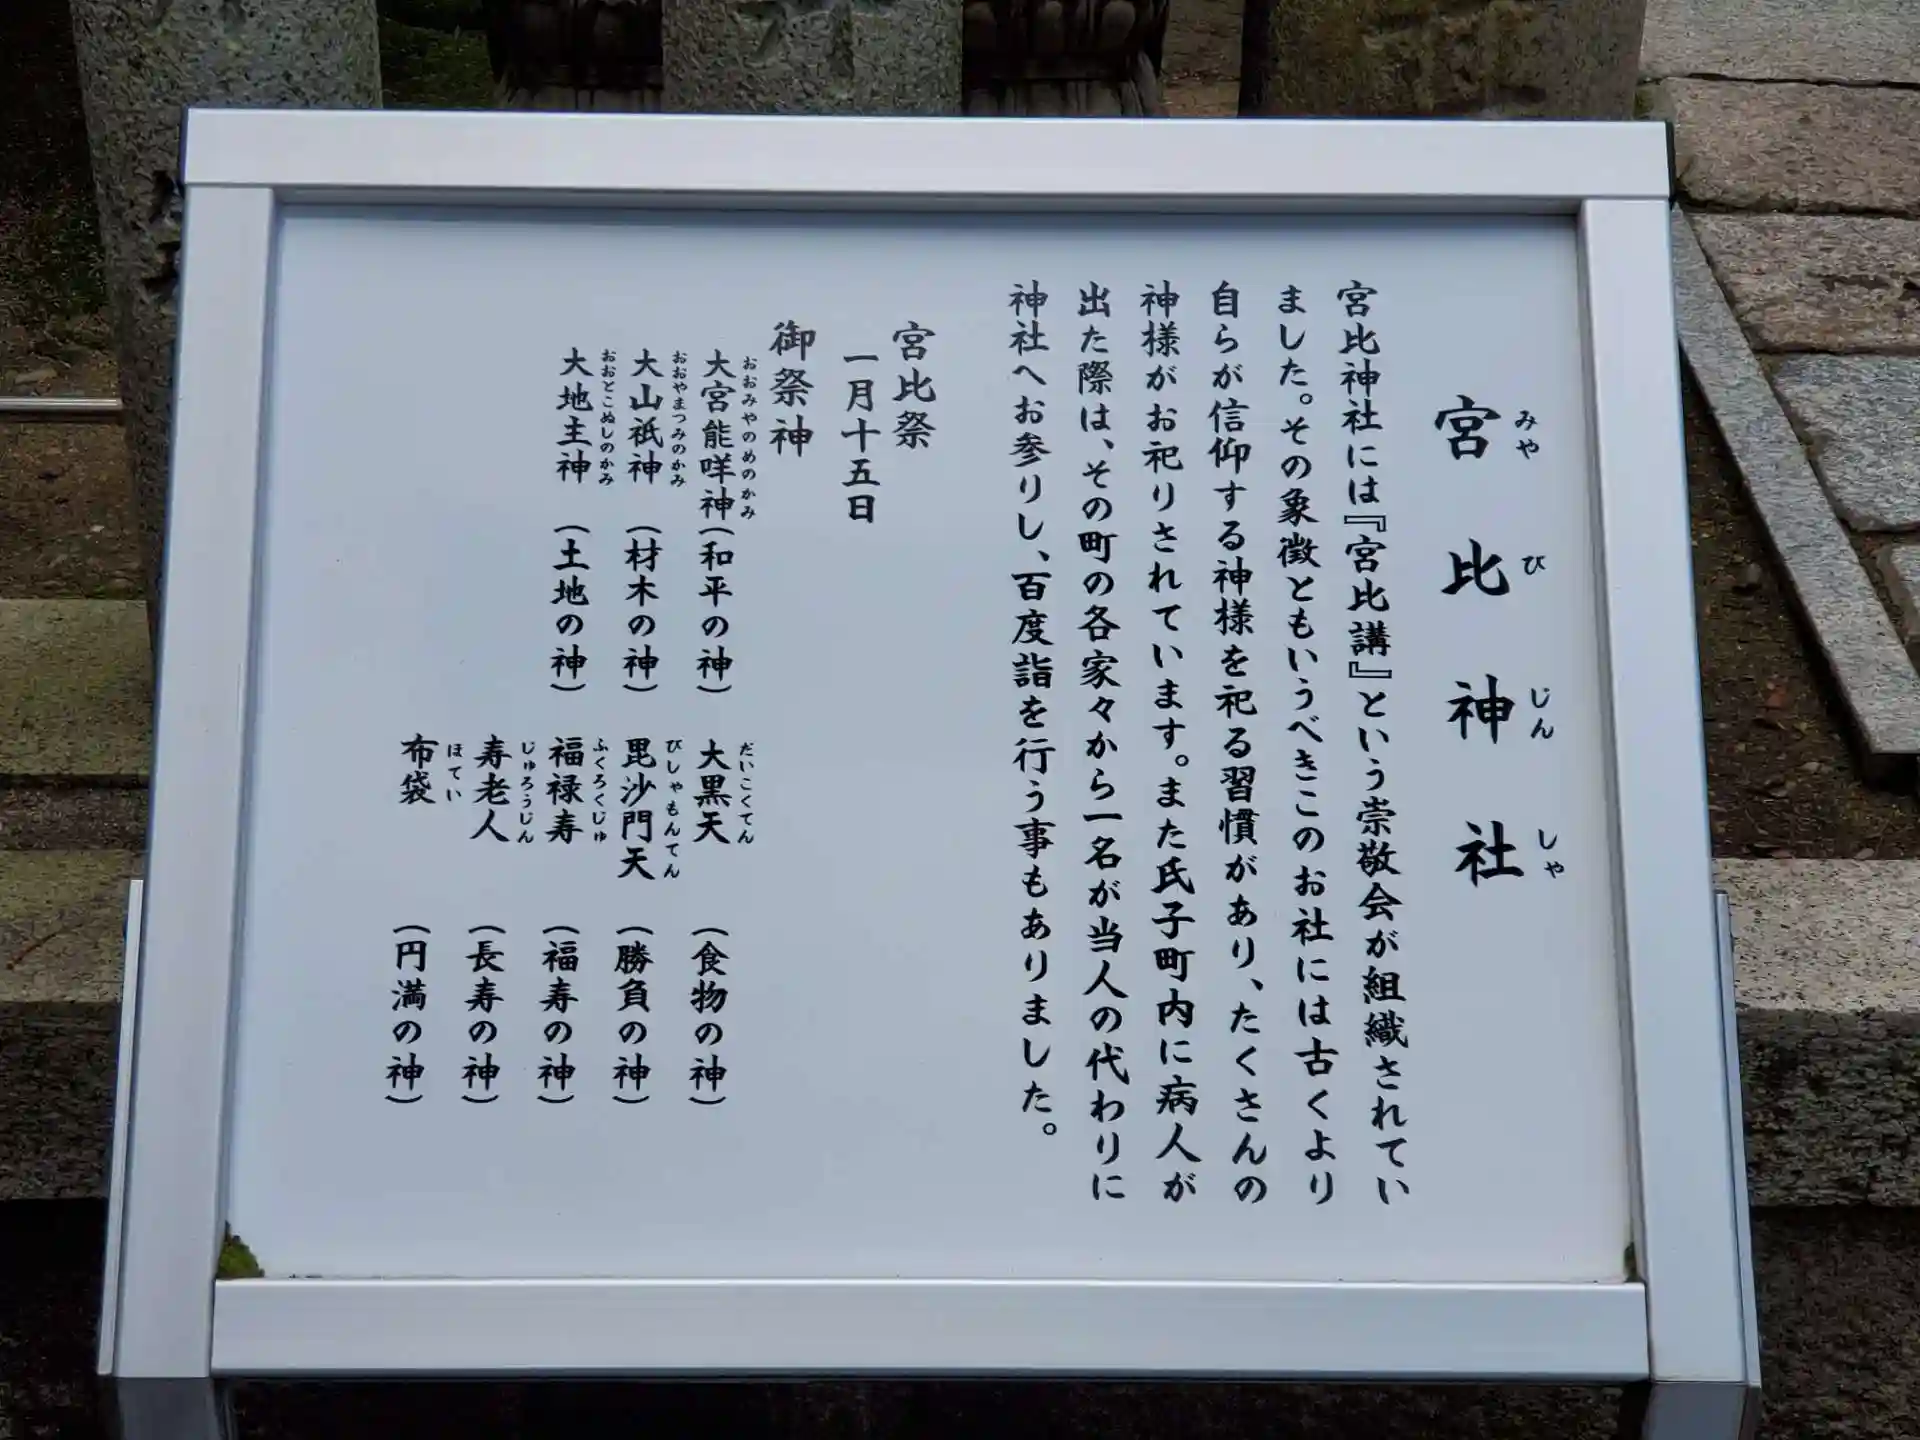 宮比神社
みやびじんしゃ
宮比神社には『宮比講』という崇敬会が組織されてい
ました。その象徴ともいうべきこのお社には古くより
自らが信仰する神様を祀る習慣があり、たくさんの
神様がお祀りされています。また氏子町内に病人が
出た際は、その町の各家々から一名が当人の代わりに
神社へお参りし、百度詣を行う事もありました。
宮比祭
一月十五日
御祭神
大宮能咩神(和平の神)
おおみやのめのかみ
大山祇神(材木の神)
おおやまつみのかみ
大地主神(土地の神)
おおとこぬしのかみ
大黒天(食物の神)
だいこくてん
毘沙門天(勝負の神)
びしゃもんてん
福禄寿(福寿の神)
ふくろくじゅ
寿老人(長寿の神)
じゅろうじん
布袋(円満の神)
ほてい